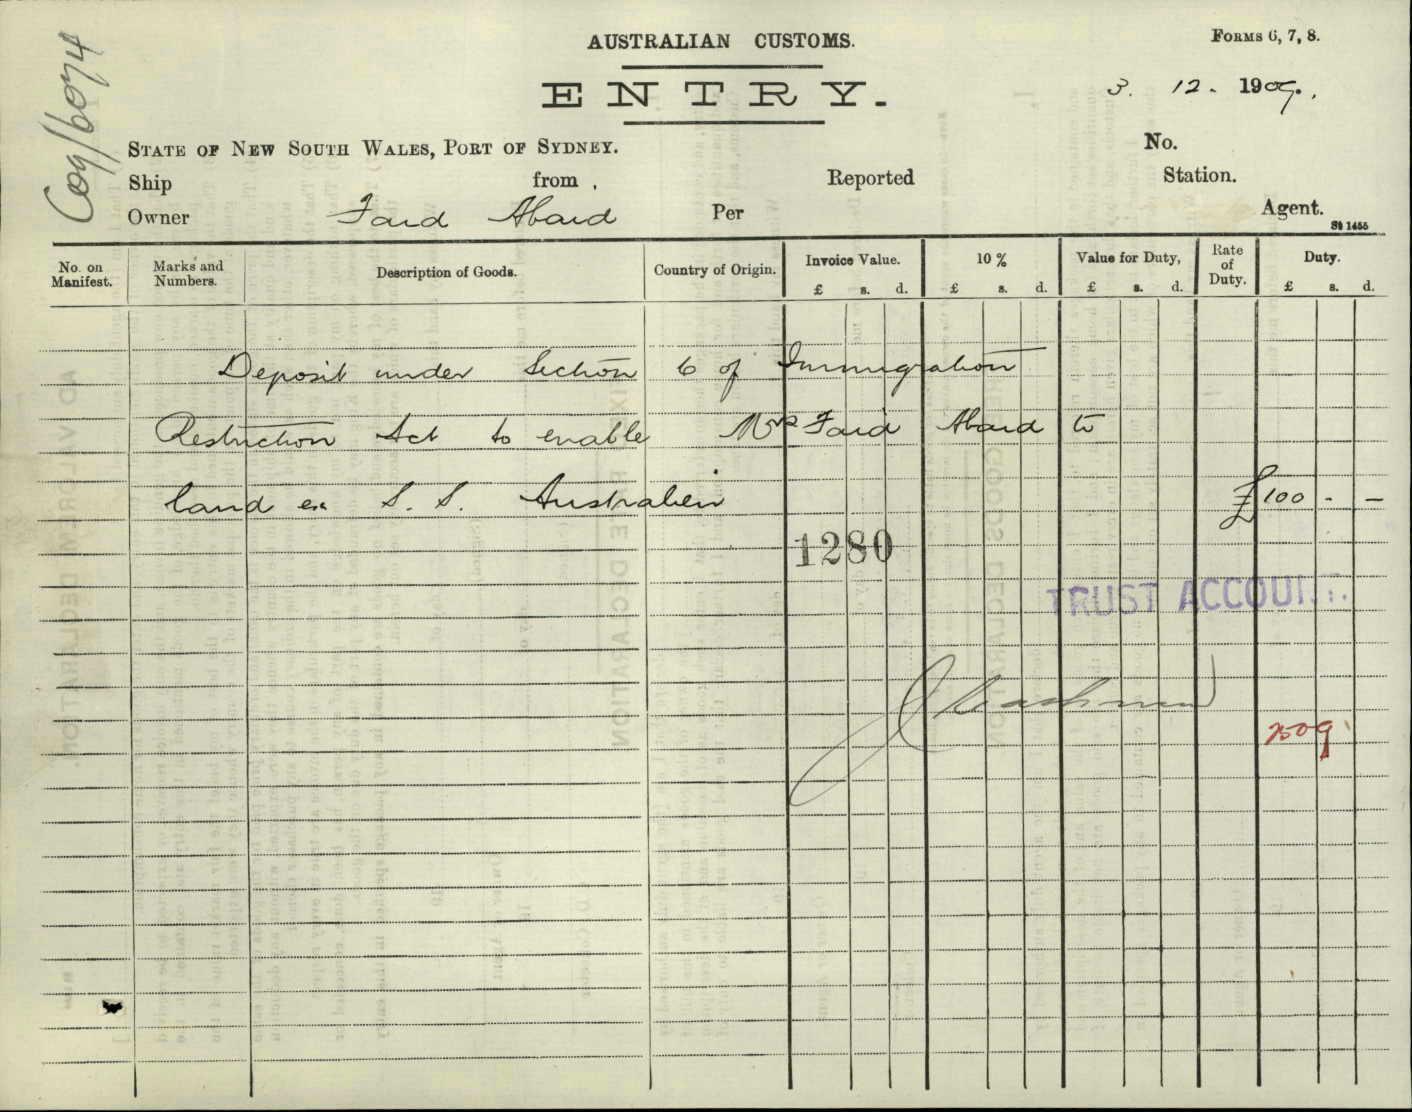 C09/6074
AUSTRALIAN CUSTOMS.
FORMS 6, 7, 8.
ENTRY.
3. 12. 1909.
STATE OF NEW SOUTH WALES, PORT OF SYDNEY.
No.
Ship from Reported Station.
Owner Faid Abaid Per Agent.
St 1455
No. on Manifest. Marks and Numbers. Description of Goods. Country of Origin. Invoice Value. 10 % Value for Duty, Rate of Duty. Duty.
£ s. d. £ s. d. £ s. d. £ s. d.
Deposit under Section 6 of Immigration
Restriction Act to enable Mrs Faid Abaid to
land ex S. S. Australien £100 - -
1280
TRUST ACCOUNT.
2509